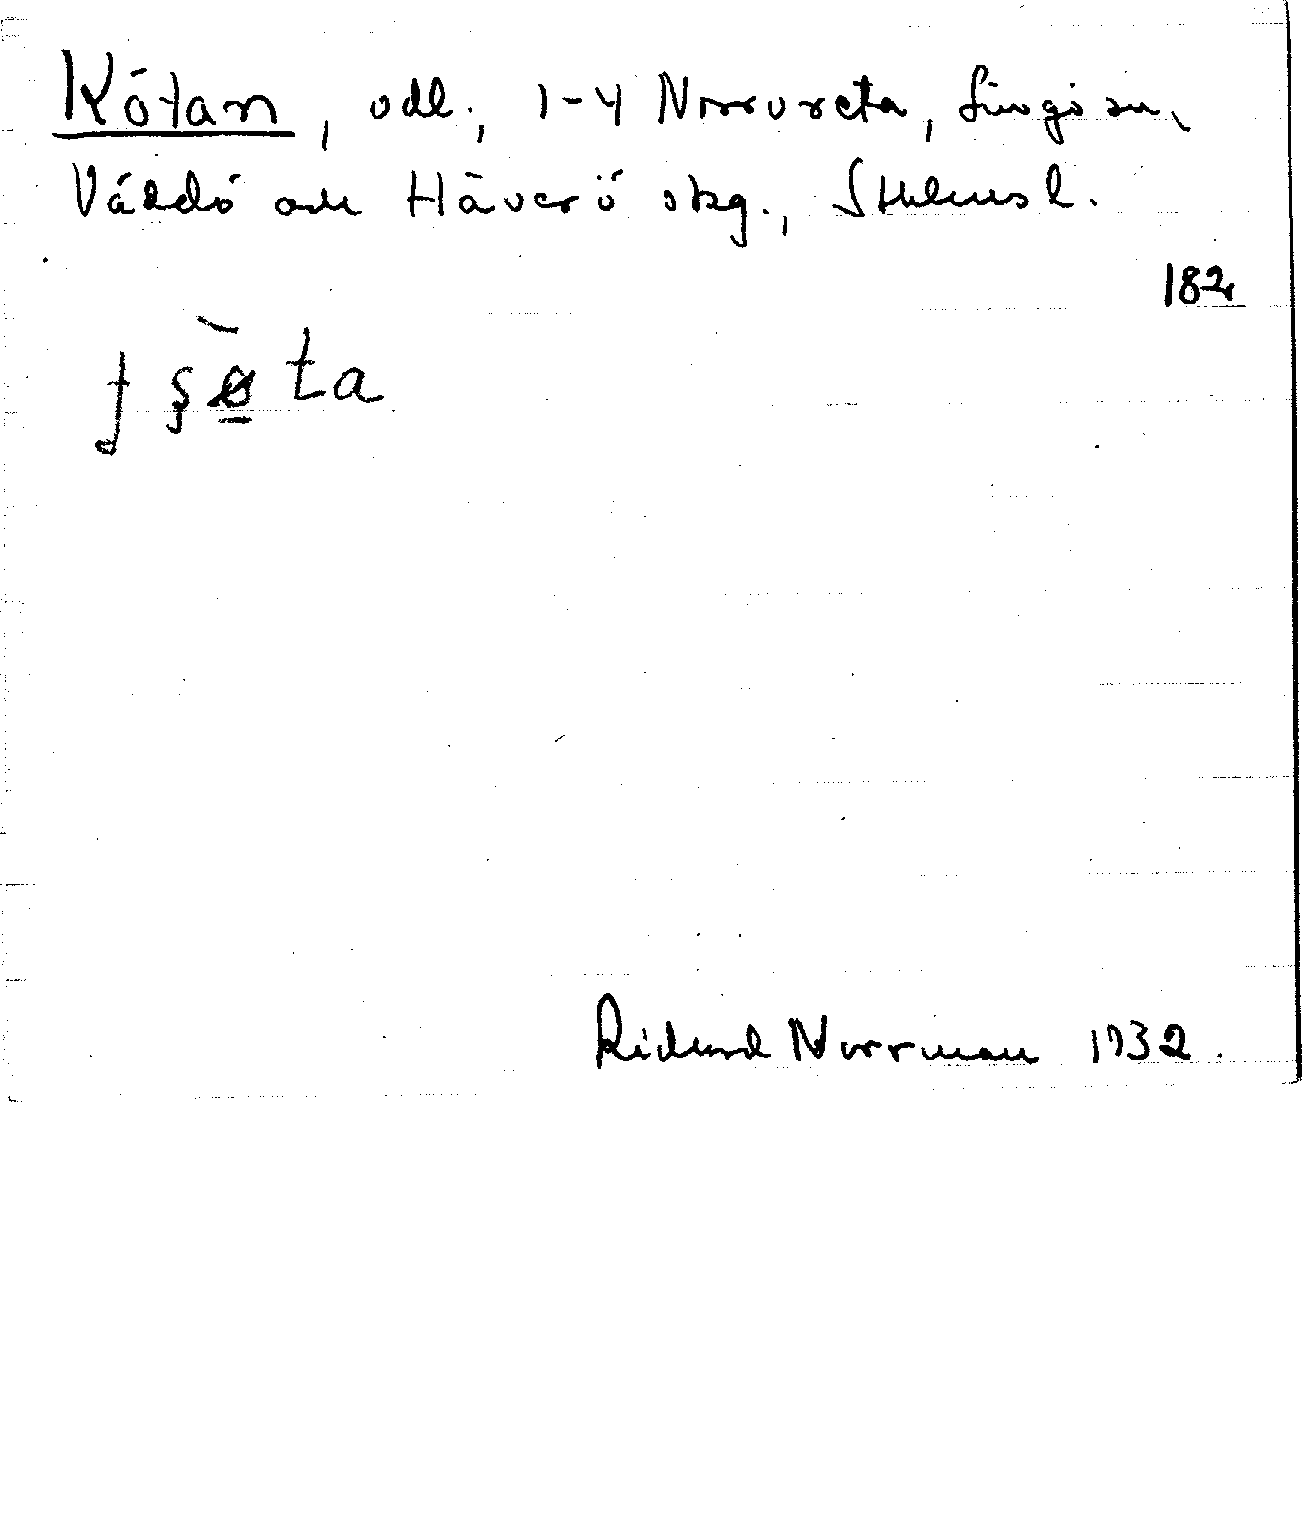 Kötan, odl., 1-4 Norrvreta, Singö sn,
Väddö och Häverö skg., Sthlms l.
182
Richard Norrman 1932.